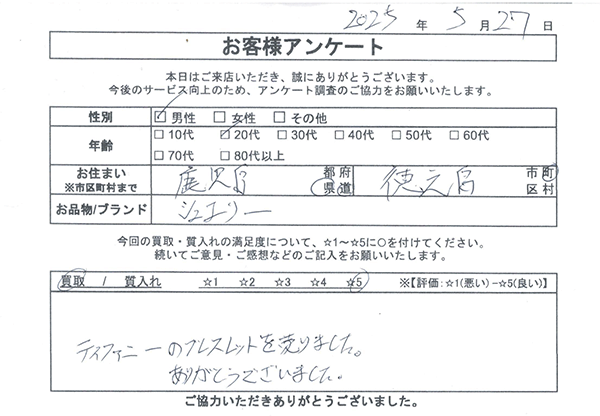 2025 年 5 月 27 日
お客様アンケート
本日はご来店いただき、誠にありがとうございます。
今後のサービス向上のため、アンケート調査のご協力をお願いいたします。
性別 ☑ 男性 □ 女性 □ その他
年齢 □ 10代 ☑ 20代 □ 30代 □ 40代 □ 50代 □ 60代
□ 70代 □ 80代以上
お住まい
※市区町村まで 鹿児島 都 府 県 道 徳之島 市 町 区 村
お品物/ブランド ジュエリー
今回の買取・質入れの満足度について、☆1～☆5に○を付けてください。
続いてご意見・ご感想などのご記入をお願いいたします。
買取 / 質入れ ☆1 ☆2 ☆3 ☆4 ☆5 ※【評価:☆1(悪い)－☆5(良い)】
ティファニーのブレスレットを売りました。
ありがとうございました。
ご協力いただきありがとうございました。